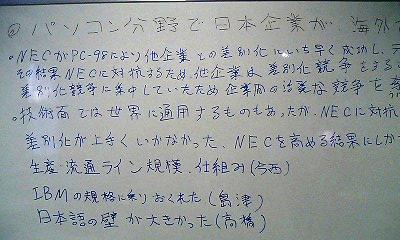 ② パソコン分野で日本企業が 海外
・NECがPC-98により他企業との差別化にいち早く成功し、デ
その結果NECに対抗するため、他企業は差別化競争をする
差別化競争に集中していたため企業間の 競争を
・技術面では世界に通用するものもあったが、NECに対抗
差別化が上手くいかなかった、NECを高める結果にしか
生産・流通ライン規模、仕組み(今西)
IBMの規格に乗りおくれた(島津)
日本語の壁が大きかった(高橋)